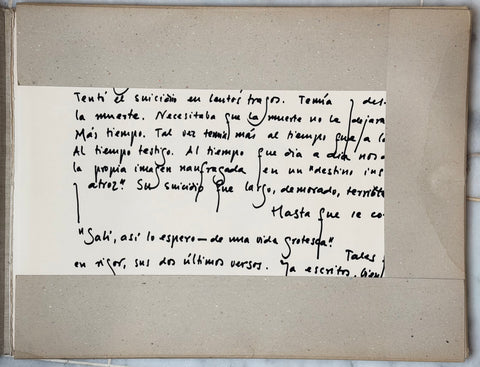 Tentó el suicidio en lentos tragos. Temía des-
la muerte. Necesitaba que la muerte no le dejara
Más tiempo. Tal vez temió más al tiempo que a l
Al tiempo testigo. Al tiempo que día a día nos
la propia imagen naufragada en un "destino ins
atroz". Su suicidio fue largo, demorado, terrible
Hasta que se co
"Salí, así lo espero— de una vida grotesca".
Tales
en rigor, sus dos últimos versos. Ya escritos, bien